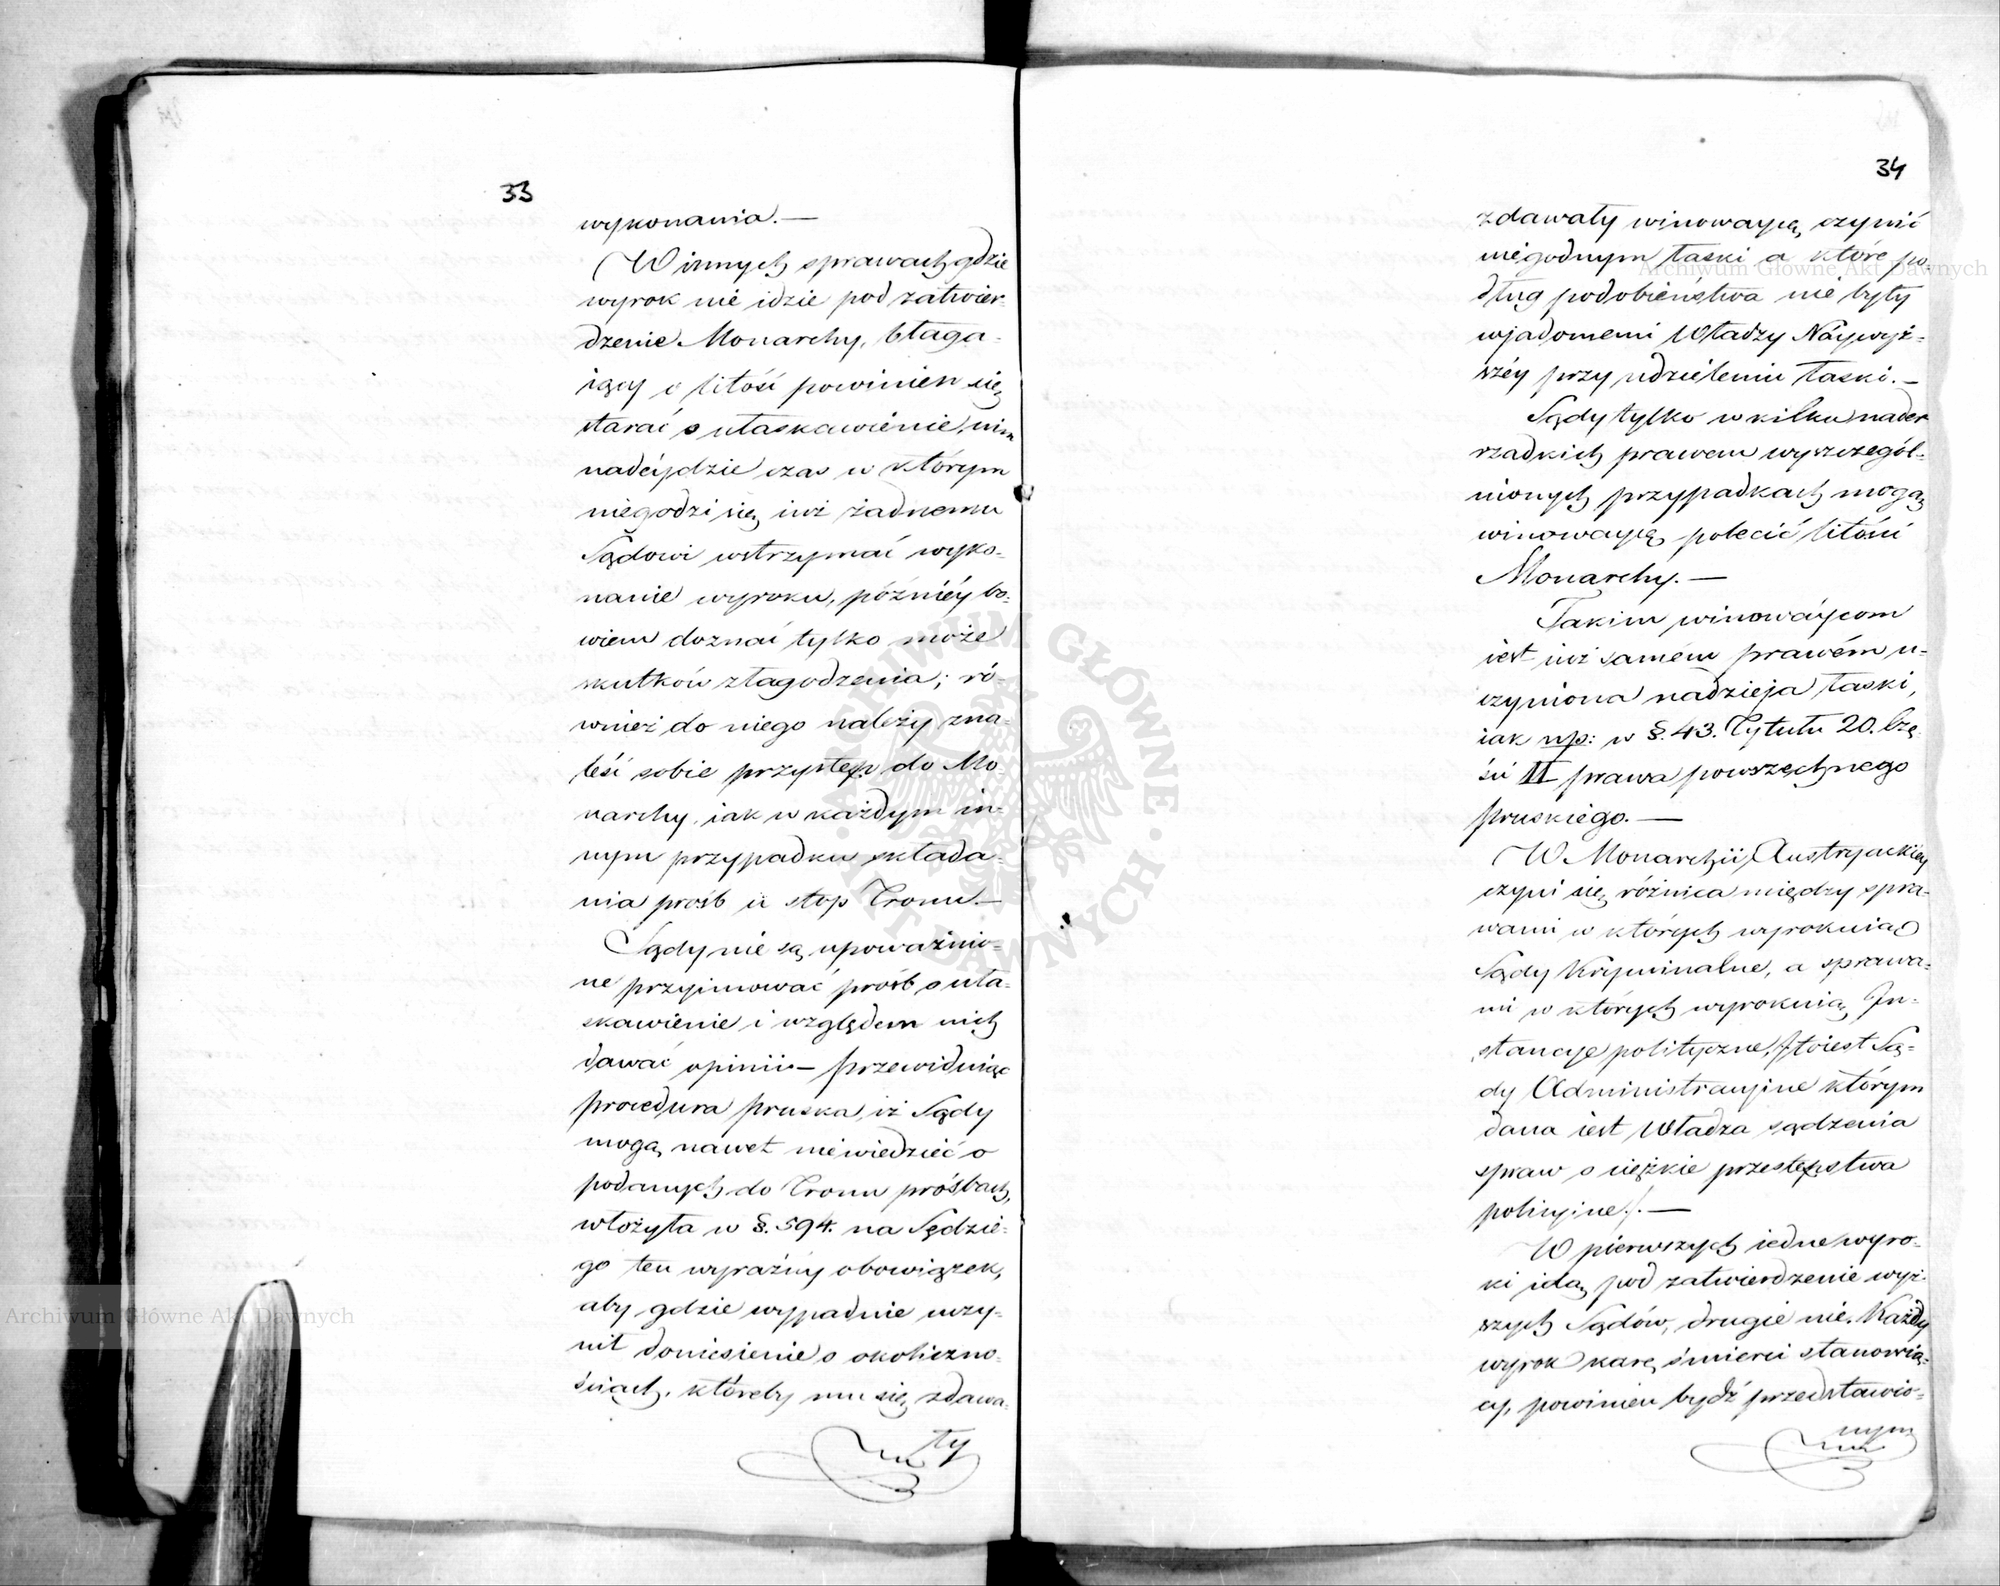 33
wykonania. —
W innych sprawach gdzie
wyrok nie idzie pod zatwier-
dzenie Monarchy, błaga-
iący o litość powinien się
starać o ułaskawienie, nim
nadeydzie czas w którym
niegodzi się iuż żadnemu
Sądowi wstrzymać wyko-
nanie wyroku, późniéy bo-
wiem doznać tylko może
skutków złagodzenia; ró-
wnież do niego należy zna-
leść sobie przystęp do Mo-
narchy, iak w każdym in-
nym przypadku składa-
nia prośb u stop Tronu. —
Sądy nie są upoważnio-
ne przyimować prośb o uła-
skawienie i względem nich
dawać opinii — przewiduiąc
procedura pruska, iż Sądy
mogą nawet niewiedzieć o
podanych do Tronu prośbach,
włożyła w §. 594. na Sędzie-
go ten wyraźny obowiązek,
aby gdzie wypadnie uczy-
nił doniesienie o okoliczno-
ściach, któreby mu się zdawa-
ły
34
zdawały winowaycę czynić
niegodnym łaski a które po-
dług podobieństwa nie były
wjadomemi Władzy Náywyż-
széy przy udzieleniu łaski. —
Sądy tylko w kilku nader
rzadkich prawem wyszczegól-
nionych przypadkach mogą
winowaycę polecić litości
Monarchy. —
Takim winowáycom
iest iuż samém prawém u-
czyniona nadzieja łaski,
iak np: w §. 43. Tytułu 20. Czę-
ści II prawa powszechnego
pruskiego. —
W Monarchii Austryackiey
czyni się różnica między spra-
wami w których wyrokuią
Sądy Kryminalne, a sprawa-
mi w których wyrokuią In-
stancye polityczne, /: to iest Są-
dy Administracyine którym
dana iest Władza sądzenia
spraw o ciężkie przestępstwa
policyine :/. —
W pierwszych iedne wyro-
ki idą pod zatwierdzenie wyż-
szych Sądów, drugie nie. Każdy
wyrok karę śmierci stanowią-
cy, powinien bydź przedstawio-
nym
Archiwum Główne Akt Dawnych
Archiwum Główne Akt Dawnych
ARCHIWUM GŁÓWNE AKT DAWNYCH